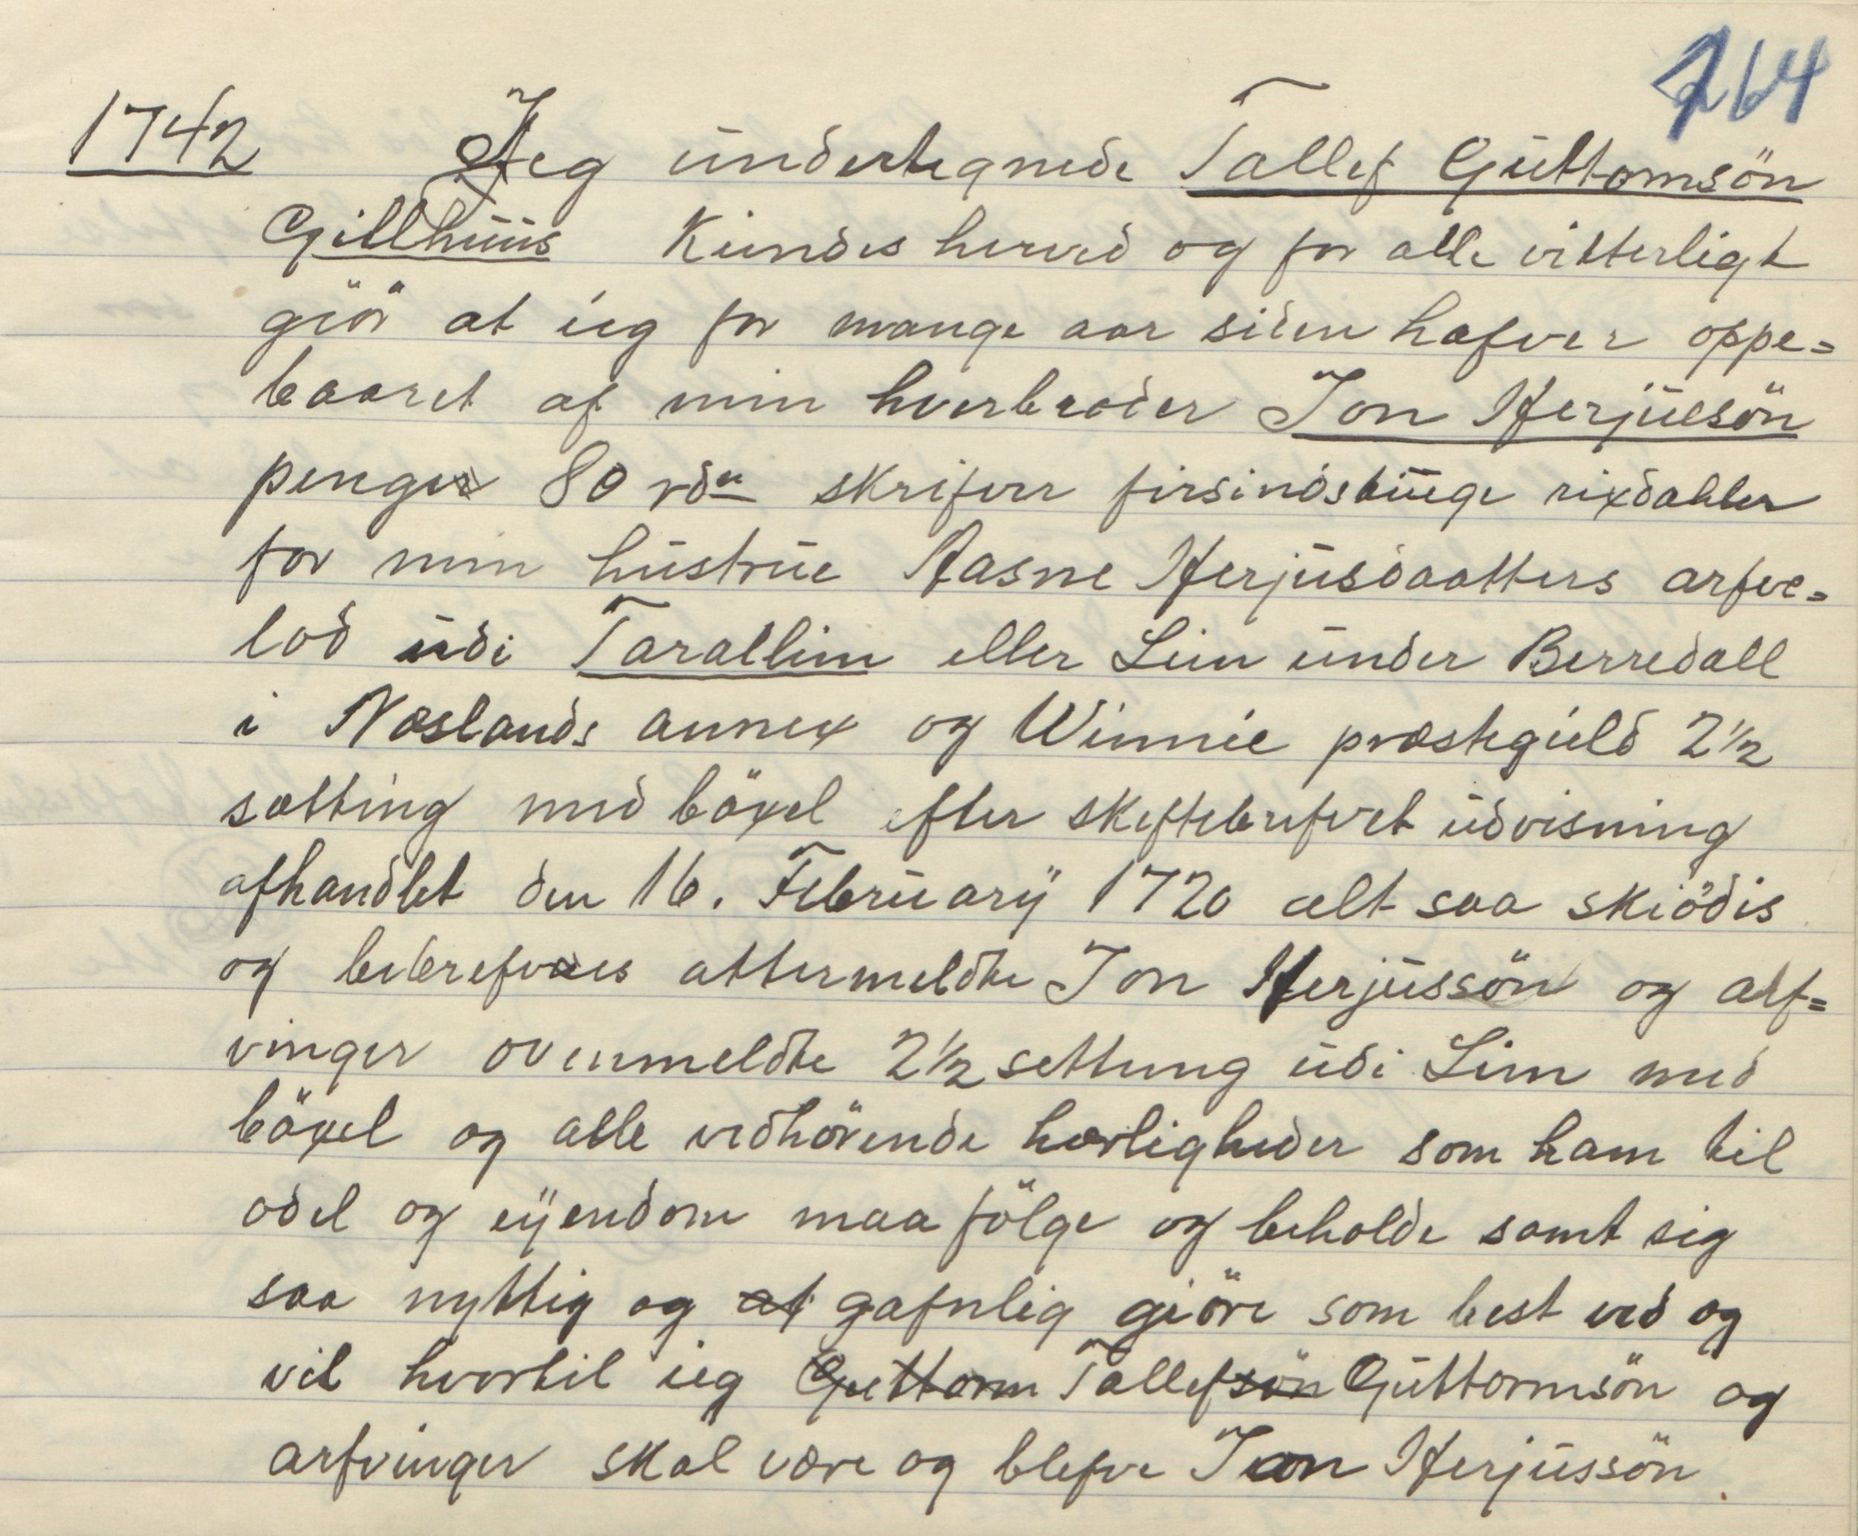 764
1742 Jeg undertegnede Tallef Guttomsön
Gillhuus Kiendes herved og for alle vitterligt
giör at ieg for mange aar siden hafver oppe=
baaret af min hverbroder Jon Herjuesön
penge 80 rdr skrifver firsindstiuge rixdahler
for min hustrue Aasne Herjusdaatters arfve=
lod udi Tarallim eller Lim under Berredall
i Næslands annex og Winnie præstegield 2½
sætting med böxel efter skeftebrefvet udvisning
afhandlet den 16. February 1720 alt saa skiödis
og bebrefves attermeldte Jon Herjussön og arf=
vinger ovenmeldte 2½ settung udi Lim med
böxel og alle vedhörende herligheder som ham til
odel og eyendom maa fölge og beholde samt sig
saa nyttig og at gafnlig giöre som best ved og
vil hvortil ieg Guttorm Tallefsön Guttormsön og
arfvinger skal være og blefve Jon Herjussön.